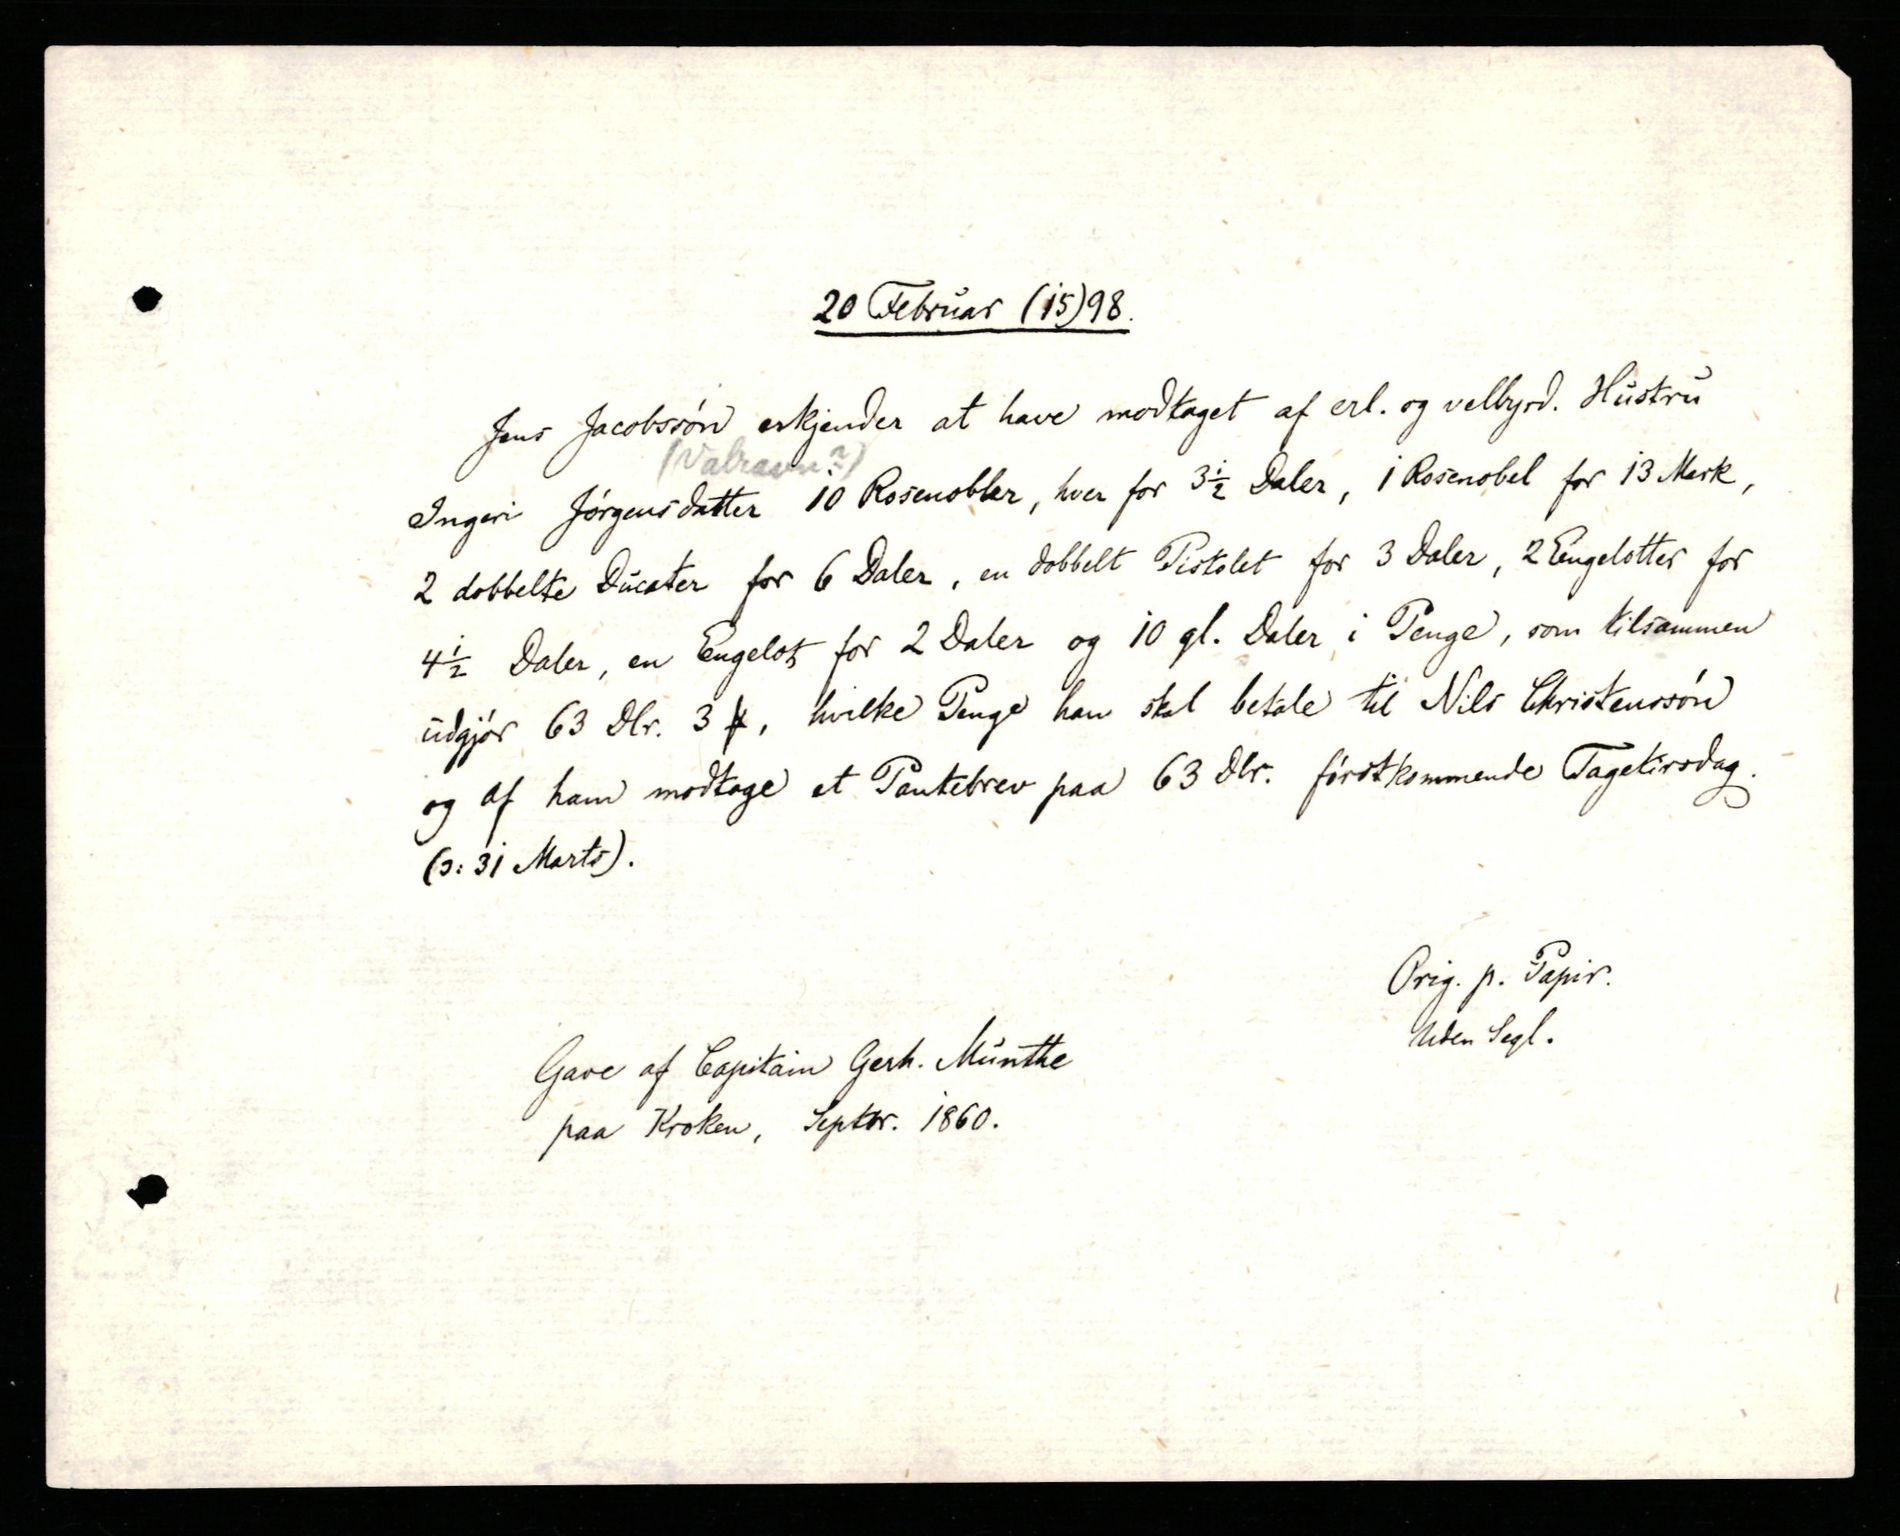 20 Februar (15)98.
Jens Jacobssøn erkjender at have modtaget af erl. og velbyrd. Hustru
(Valravn?)
Ingeri Jørgensdatter 10 Rosenobler, hver for 3½ Daler, 1 Rosenobel for 13 Mark,
2 dobbelte Ducater for 6 Daler, en dobbelt Pistolet for 3 Daler, 2 Engelotter for
4½ Daler, en Engelot for 2 Daler og 10 gl. Daler i Penge, som tilsammen
udgjør 63 Dlr. 3 ꝑ, hvilke Penge han skal betale til Nils Christenssøn
og af ham modtage et Pantebrev paa 63 Dlr. førstkommende Fagetirsdag.
(ɔ: 31 Marts).
Orig. p. Papir.
Uden Segl.
Gave af Capitain Gerh. Munthe
paa Kroken, Septbr. 1860.